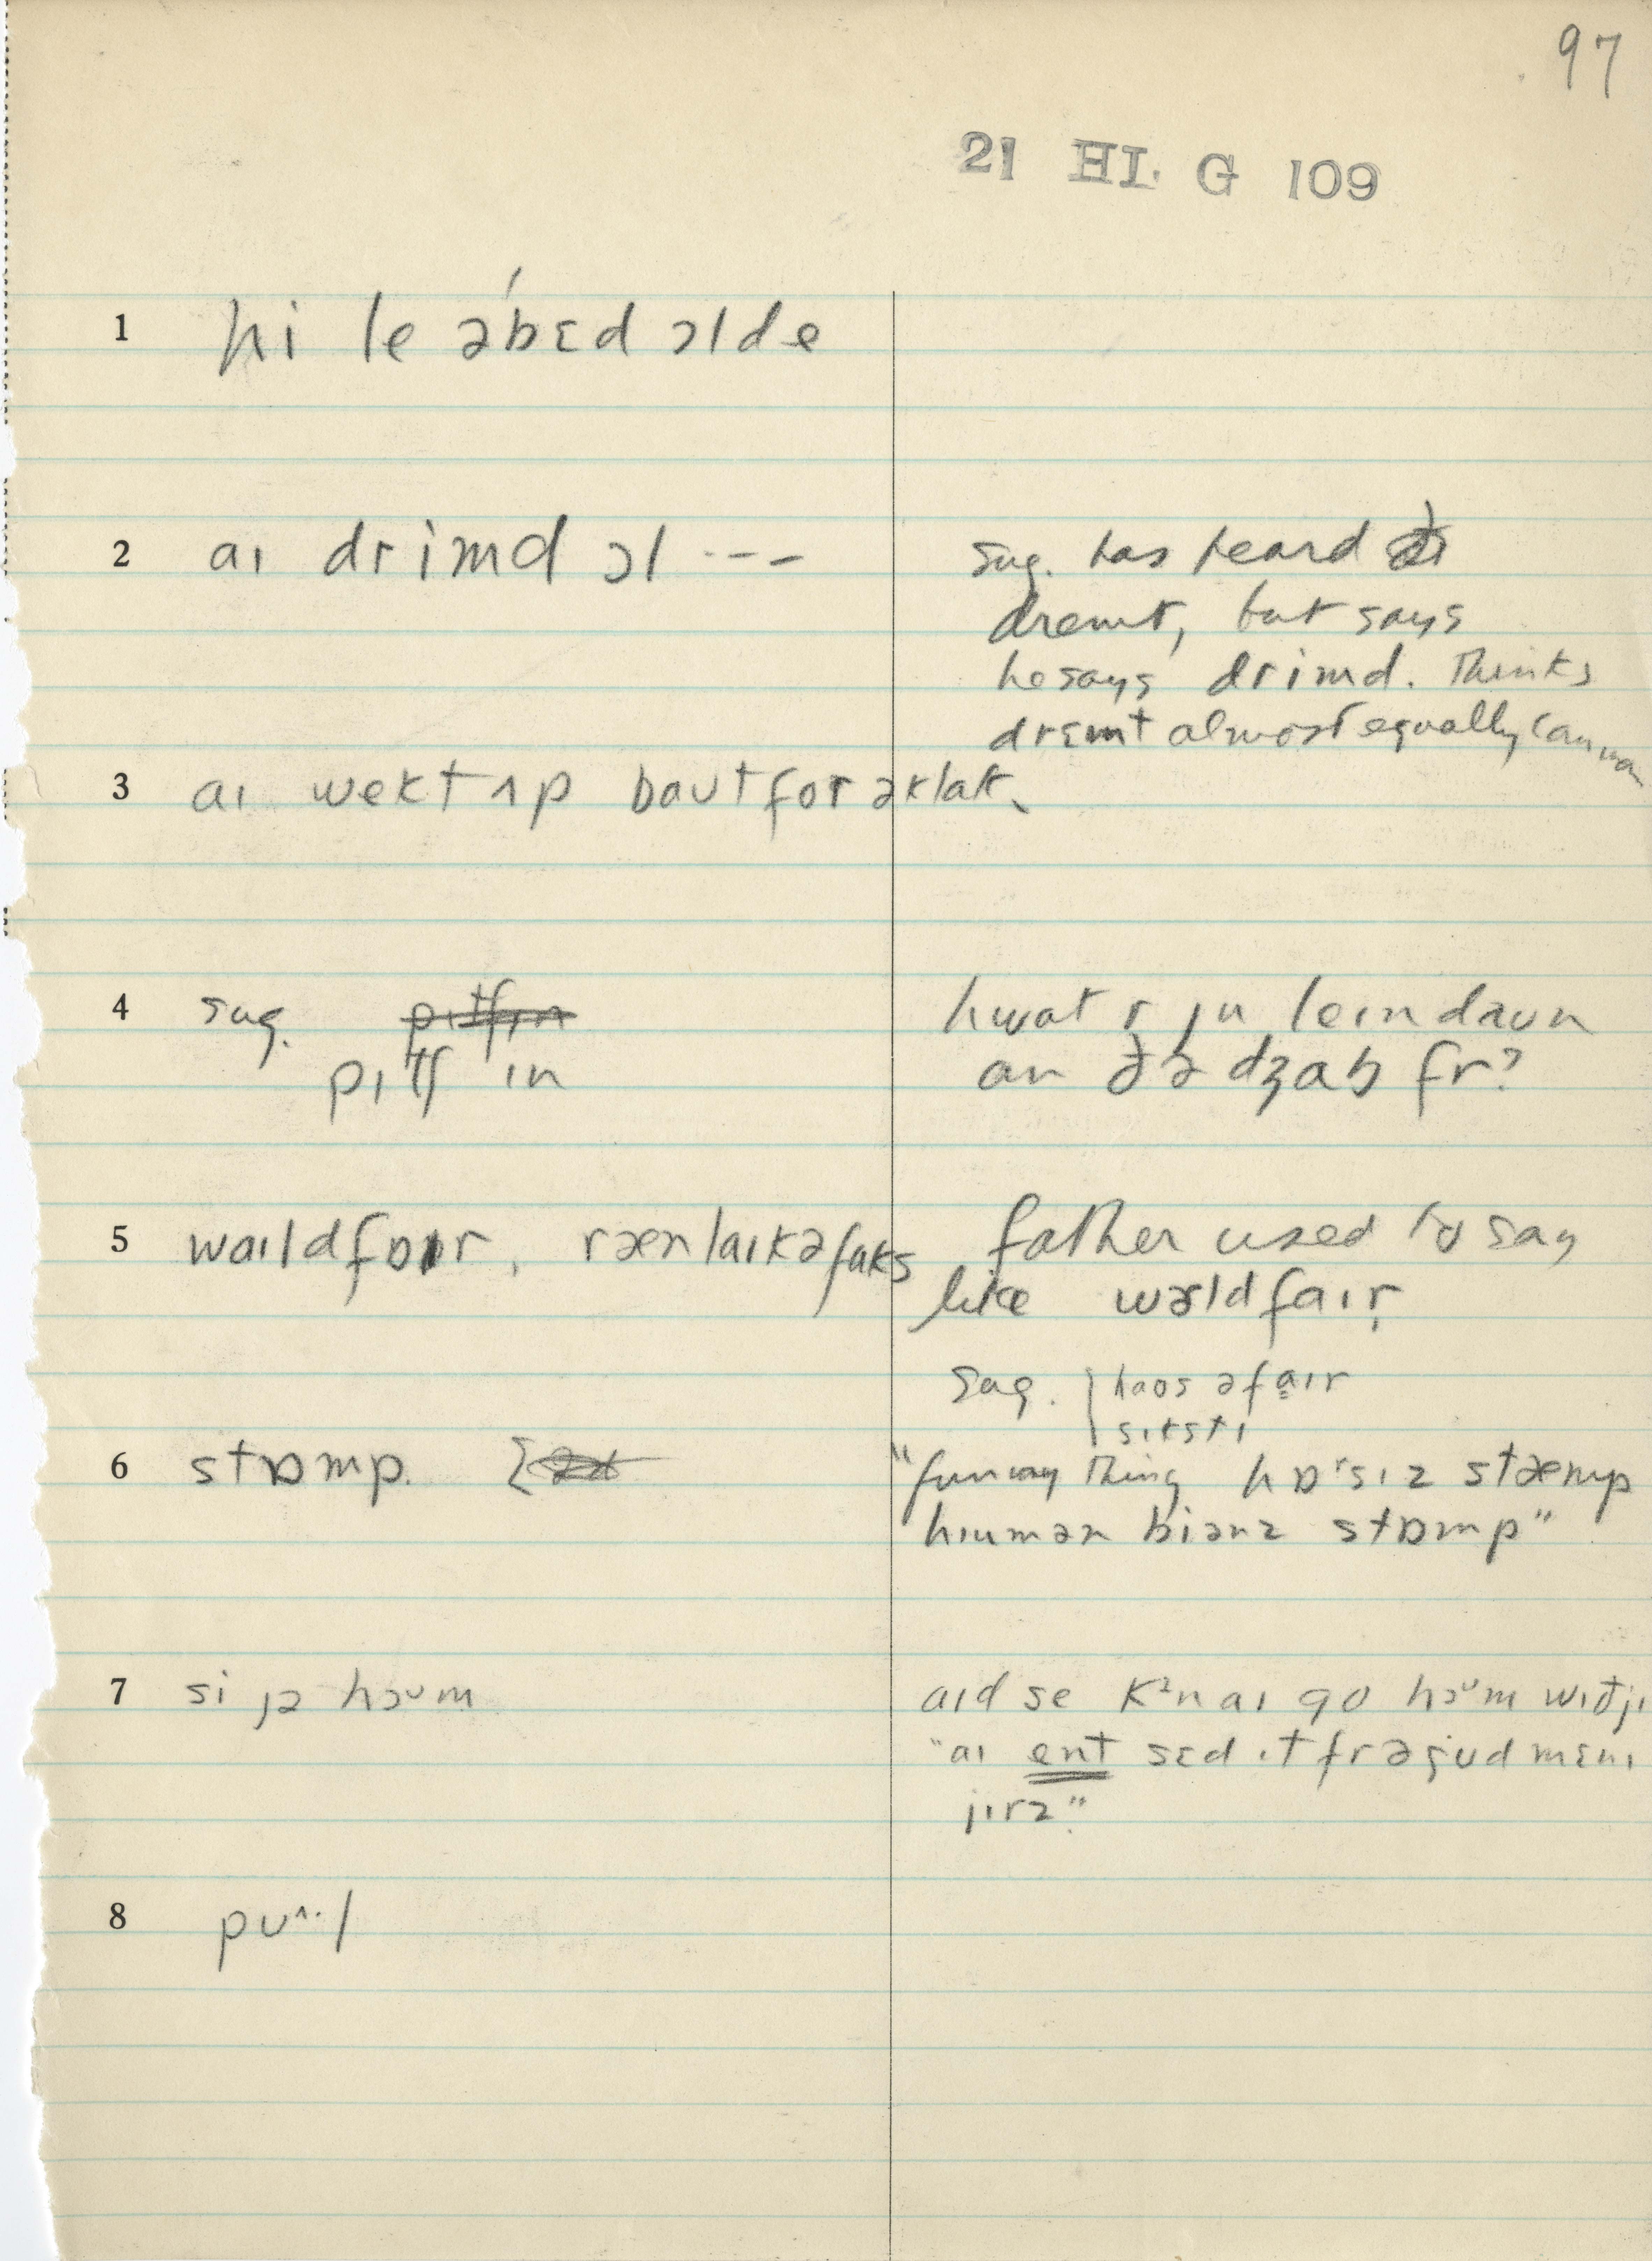 97
21 HL G 109
1 hi le əbɛ́d ɔlde
2 aɪ drimd ɔl ---
sug. has heard
dremt, but says
he says drimd. Thinks
drɛmt almost equally common
3 aɪ wekt ʌp baut for əklak.
4 sug. pɪtʃ in
hwat r ju leɪn daun
an ðə dʒab fr?
5 waɪld fɒɪr, ræn laɪk ə faks
father used to say
like wərld faɪr
sug. haos əfaɪr
sɪksti
6 stɒmp.
"funny thing hɒrsɪz stæmp
hɪumən biənz stɒmp"
7 si jə hɔᴜm
aɪd se kᵊn aɪ go hɔᴜm wɪð jɪ
"aɪ ent sɛd ɪt fr ə gud mɛnɪ
jɪrz."
8 pᴜ^·l